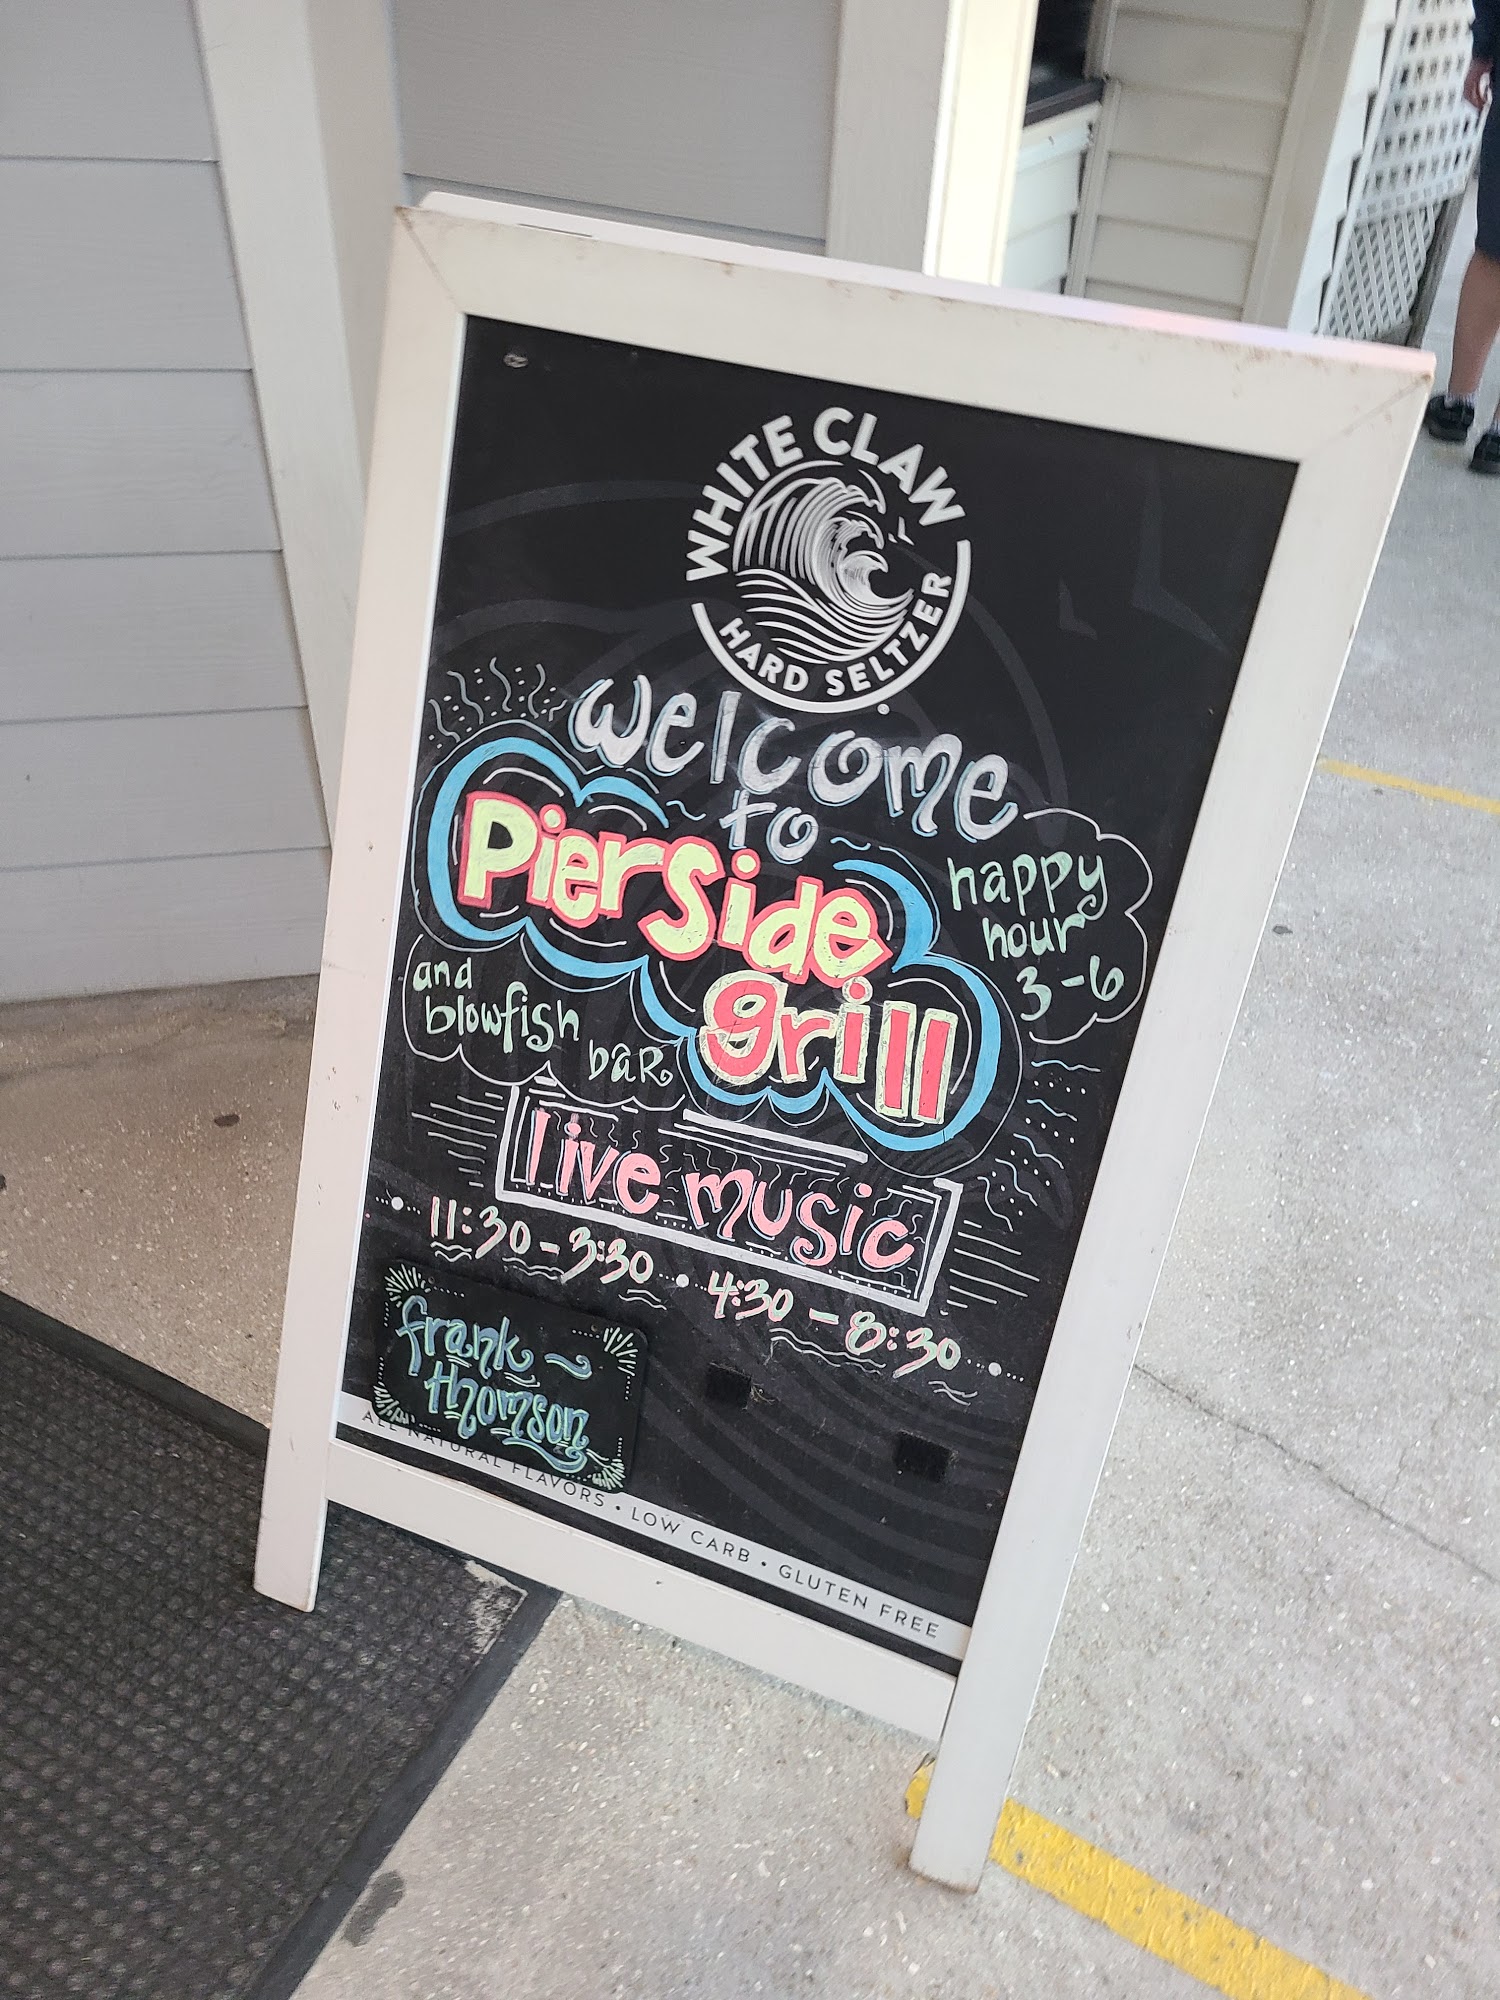 WHITE CLAW
HARD SELTZER
welcome
to
Pierside
grill
happy
hour
3-6
and
blowfish
bar
live music
11:30 - 3:30 • 4:30 - 8:30
frank
thomson
ALL NATURAL FLAVORS • LOW CARB • GLUTEN FREE